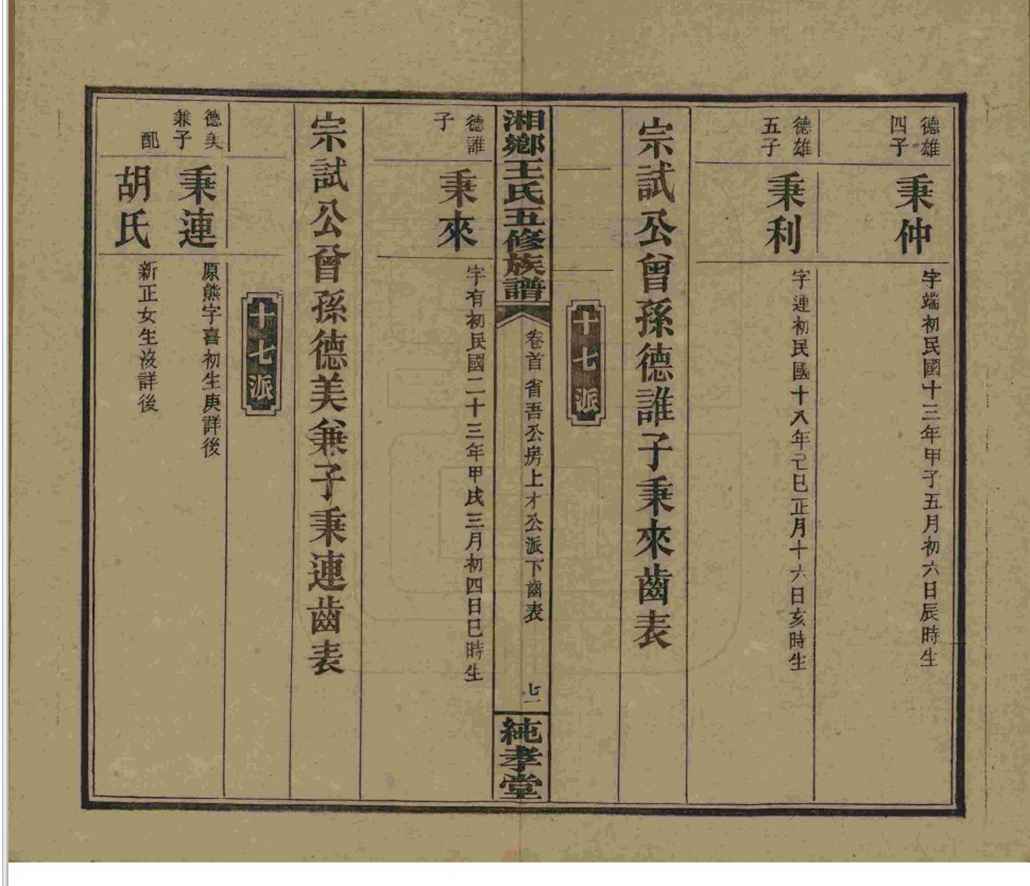 德雄
四子
秉仲
字端初民國十三年甲子五月初六日辰時生
德雄
五子
秉利
字連初民國十八年己巳正月十六日亥時生
宗試公曾孫德誰子秉來齒表
十七派
湘鄉王氏五修族譜
卷首 省吾公房上才公派下齒表
七一
純孝堂
德誰
子
秉來
字有初民國二十三年甲戌三月初四日巳時生
宗試公曾孫德美兼子秉連齒表
十七派
德美
兼子
秉連
原熊字喜初生庚詳後
配
胡氏
新正女生歿詳後